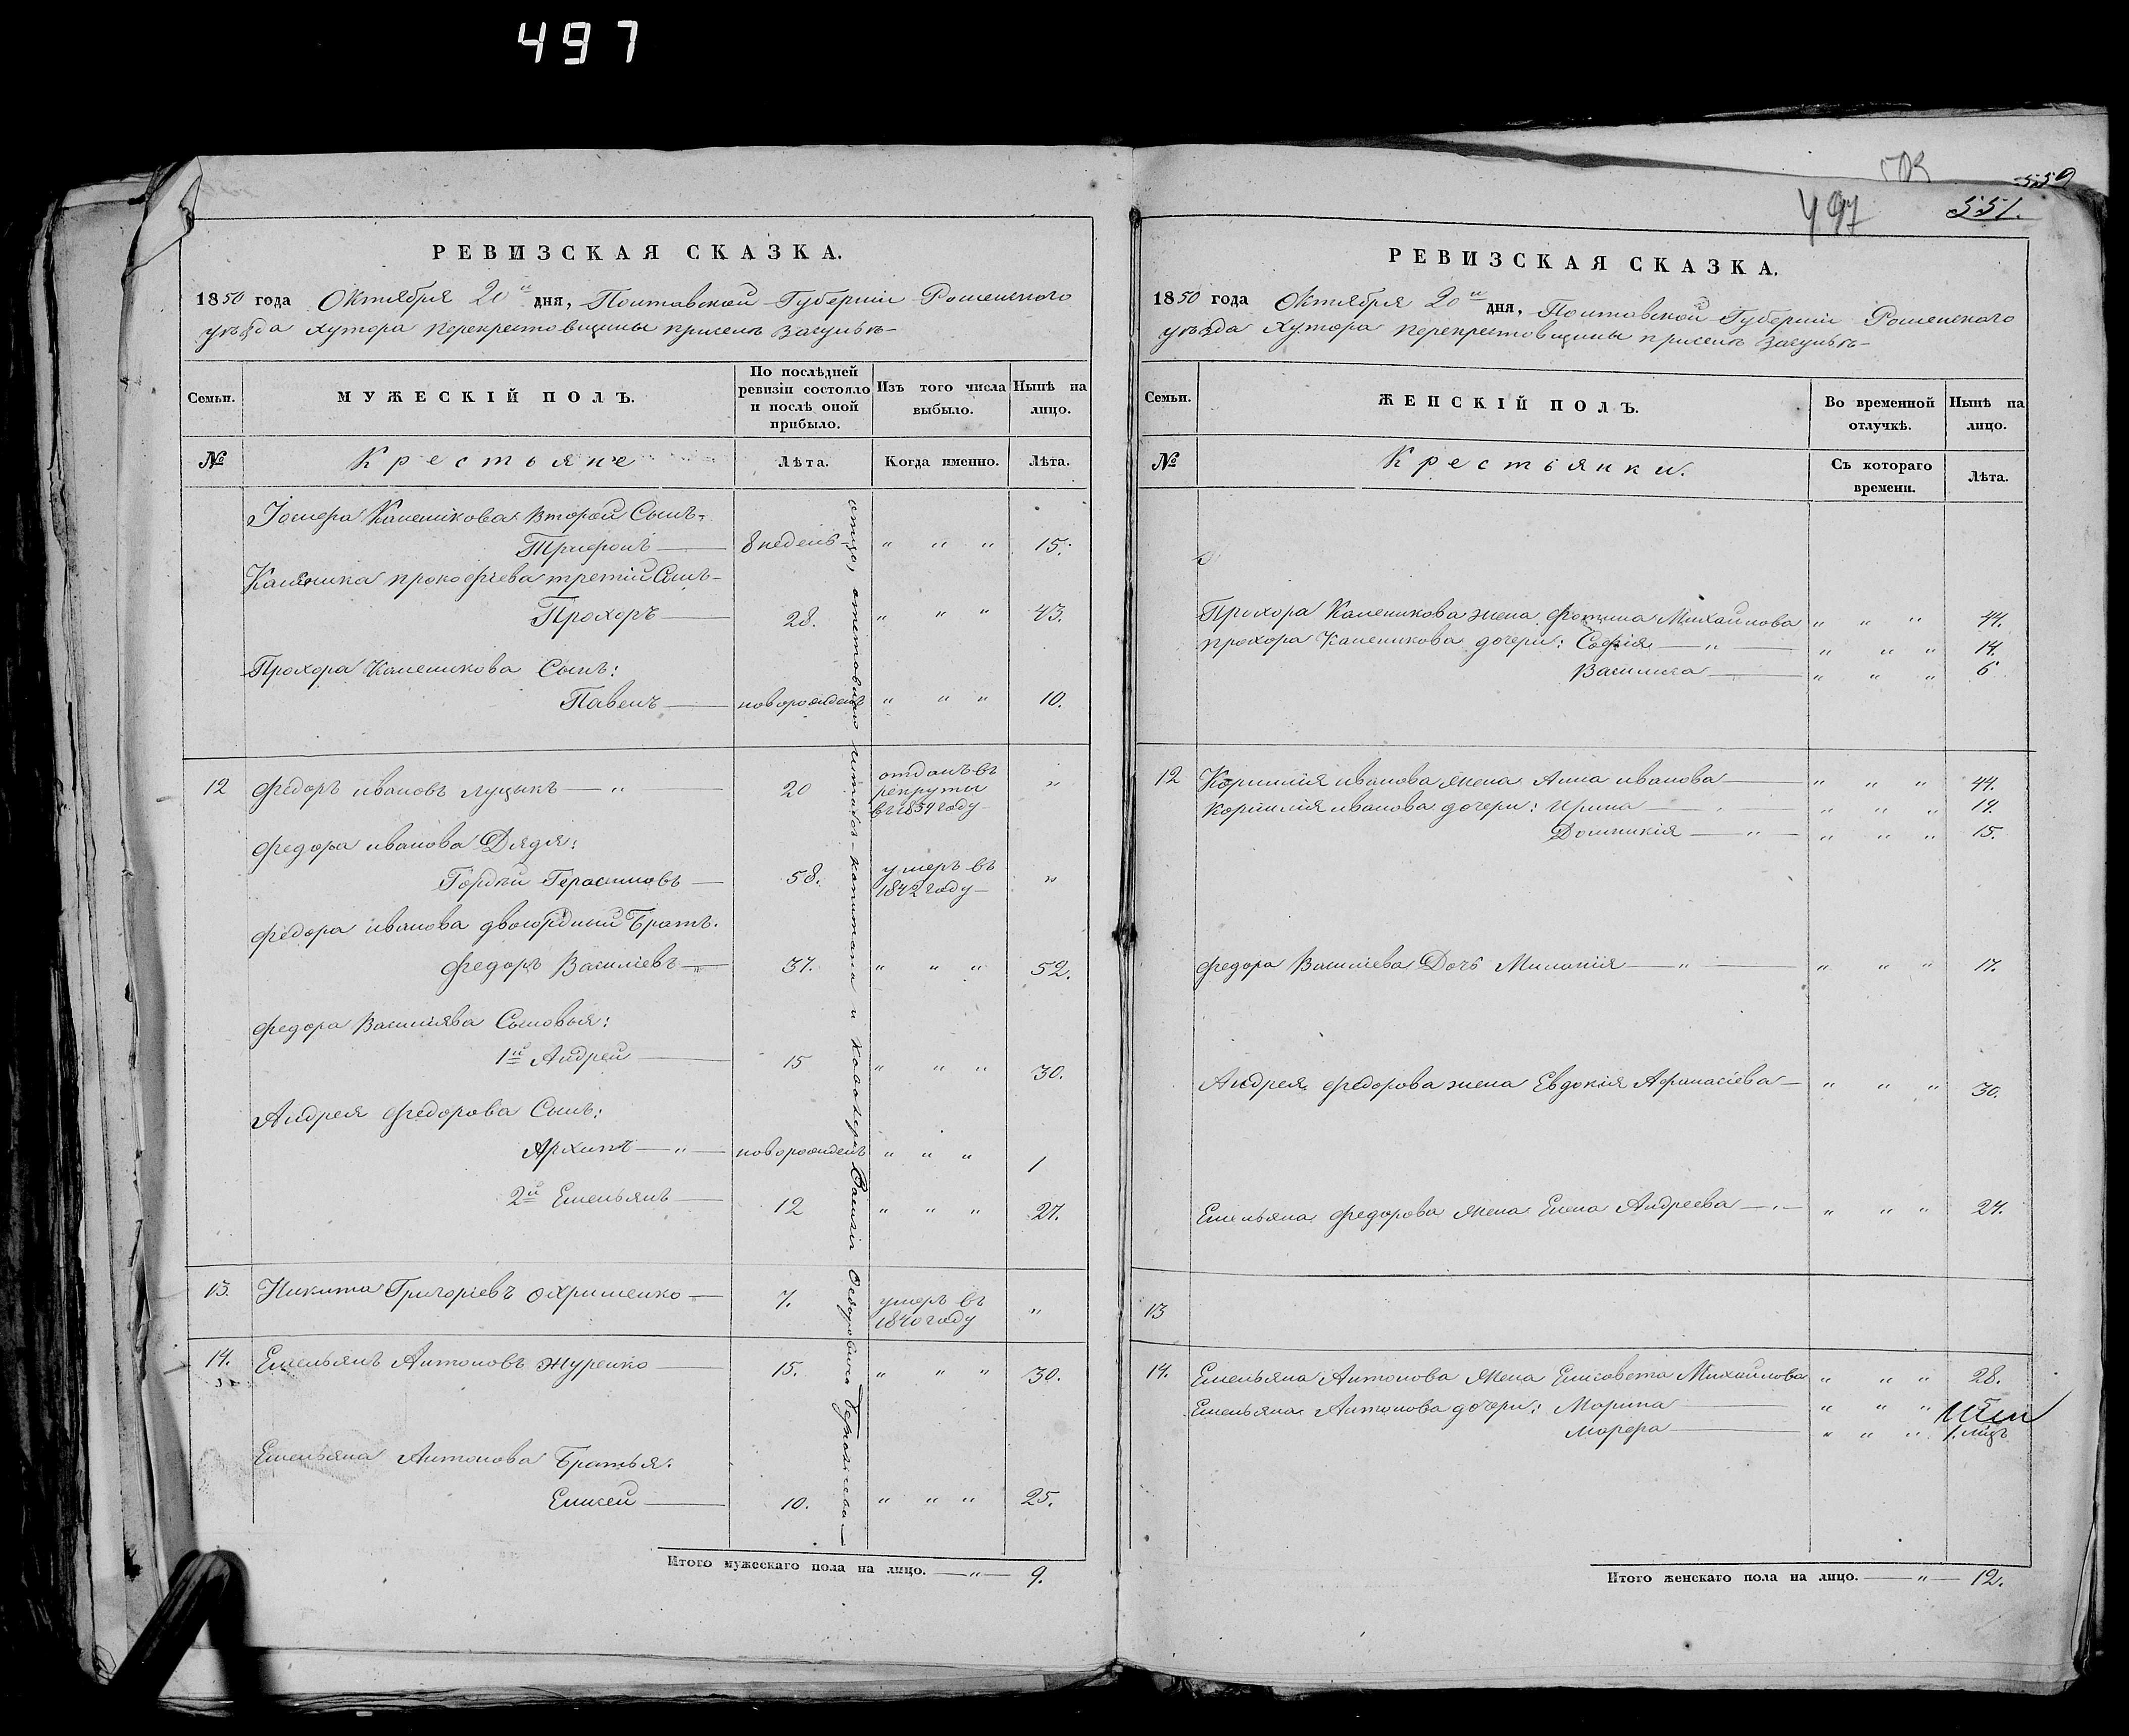 497
РЕВИЗСКАЯ СКАЗКА.
1850 года Октября 20 дня, Полтавской Губерніи Роменского
уѣзда хутора Перекрестовщины приселк
Семьи.
МУЖЕСКІЙ ПОЛЪ.
По послѣдней ревизіи состояло и послѣ оной прибыло.
Изъ того числа выбыло.
Нынѣ на лицо.
№
Крестьяне
Лѣта.
Когда именно.
Лѣта.
Каленікова второй Сынъ
Трифонъ — 8 недель „ „ „ 15.
Каленика прокофіева третій Сынъ
Прохоръ — 28. „ „ „ 43.
Прохора Каленикова Сынъ:
Павелъ — новорожденъ „ „ „ 10.
12 Федоръ ивановъ луцыкъ — „ — 20 отданъ въ рекруты въ 1839 году „
Федора иванова Дядя:
Гордѣй Герасимовъ — 58. умеръ въ 1842 году „
Федора иванова двоюрдный Братъ.
Федоръ Василіевъ — 37. „ „ „ 52.
Федора Василіява Сыновья:
1й Андрей — 15 „ „ „ 30.
Андрея Федорова Сынъ:
Архипъ — „ — новорожденъ „ „ „ 1
2й Емельянъ — 12 „ „ „ 27.
13. Никита Григоріевъ Охрименко — 7. умеръ въ 1840 году „
14. Емельянъ Антоновъ Журенко — 15. „ „ „ 30.
Емельяна Антонова Братья:
Елисей — 10. „ „ „ 25.
Итого мужескаго пола на лицо. — „ — 9.
отставнаго штабс-капитана и кавалера Василія Федоровича
497
551.
550
РЕВИЗСКАЯ СКАЗКА.
1850 года Октября 20 дня, Полтавской Губерніи Роменского
уѣзда Хутора Перекрестовщины приселк
Семьи.
ЖЕНСКІЙ ПОЛЪ.
Во временной отлучкѣ.
Нынѣ на лицо.
№
Крестьянки.
Съ котораго времени.
Лѣта.
Прохора Каленикова жена Фотина Михайлова „ „ „ 44.
прохора Каленикова дочери: Софія — „ — „ „ „ 14.
Василиса — „ „ „ 6
12 Корнилія иванова жена Анна иванова — „ „ „ 44.
Корнилія иванова дочери: Ирина — „ „ „ 19.
Домникія — „ — „ „ „ 15.
Федора Василіева Дочь Миланія — „ — „ „ „ 17.
Андрея Федорова жена Евдокія Афанасіева — „ „ „ 30.
Емельяна Федорова жена Елена Андреева — „ — „ „ „ 24.
13
14. Емельяна Антонова жена Елисавета Михайлова „ „ „ 28.
Емельяна Антонова дочери: Марина — „ „ „
Марфа — „ „ „
Итого женскаго пола на лицо. — „ — 12.